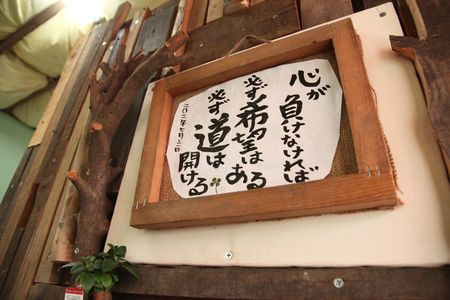 心が
負けなければ
必ず希望はある
必ず道は
開ける
二〇一二年七月二一日